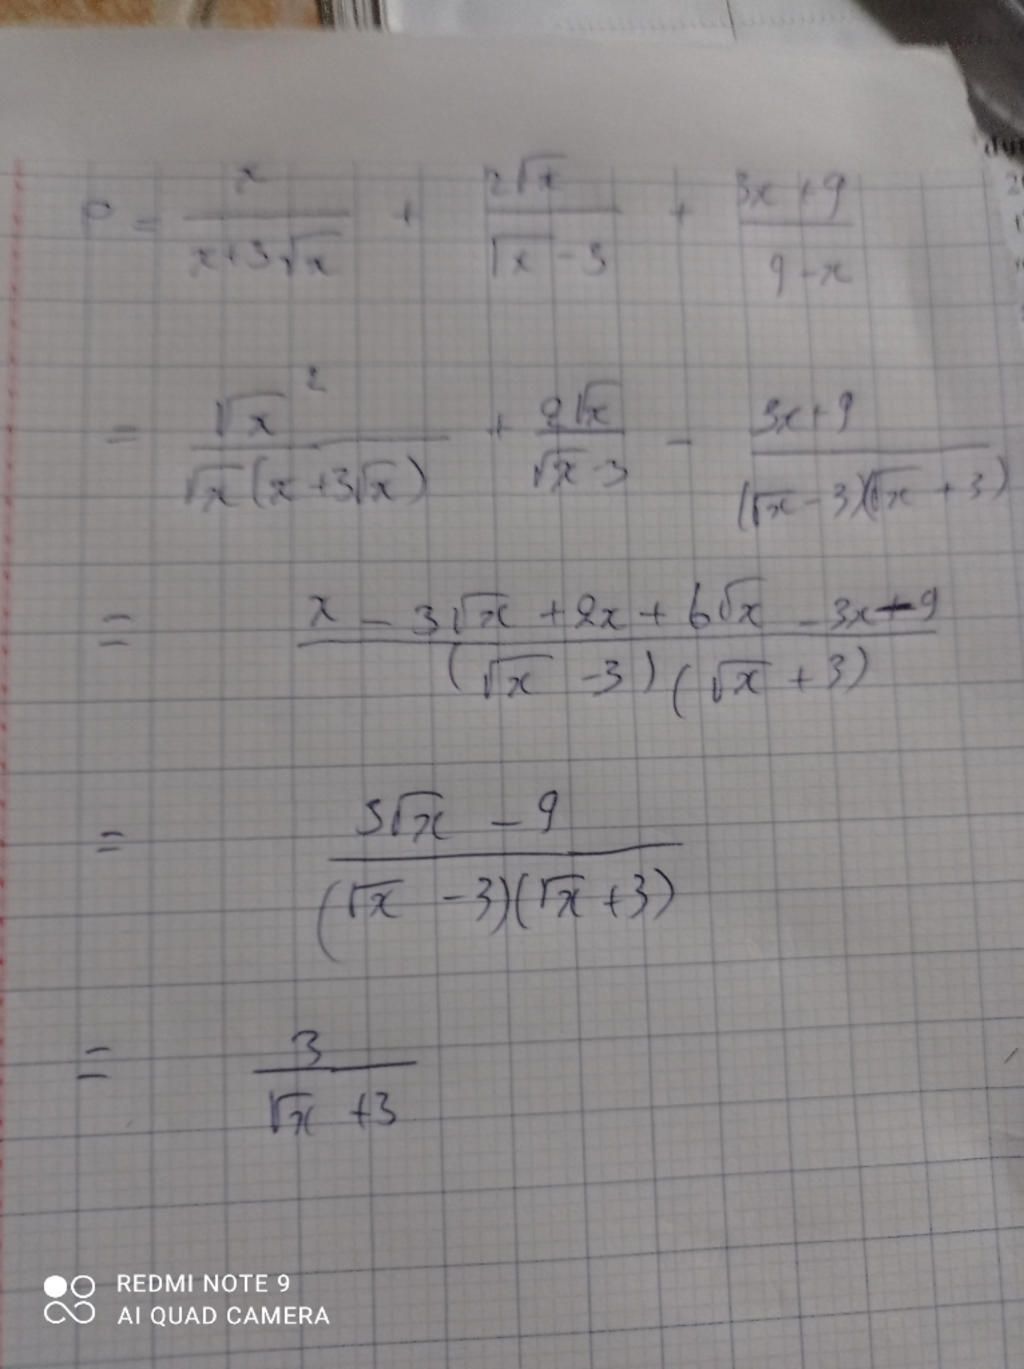 P = x / (x+3√x) + 2√x / (√x - 3) + (3x+9) / (9-x)
= √x² / (√x(x+3√x)) + 2√x / (√x-3) - (3x+9) / ((√x-3)(√x+3))
= (x - 3√x + 2x + 6√x - 3x - 9) / ((√x - 3)(√x + 3))
= (3√x - 9) / ((√x - 3)(√x + 3))
= 3 / (√x + 3)
REDMI NOTE 9
AI QUAD CAMERA